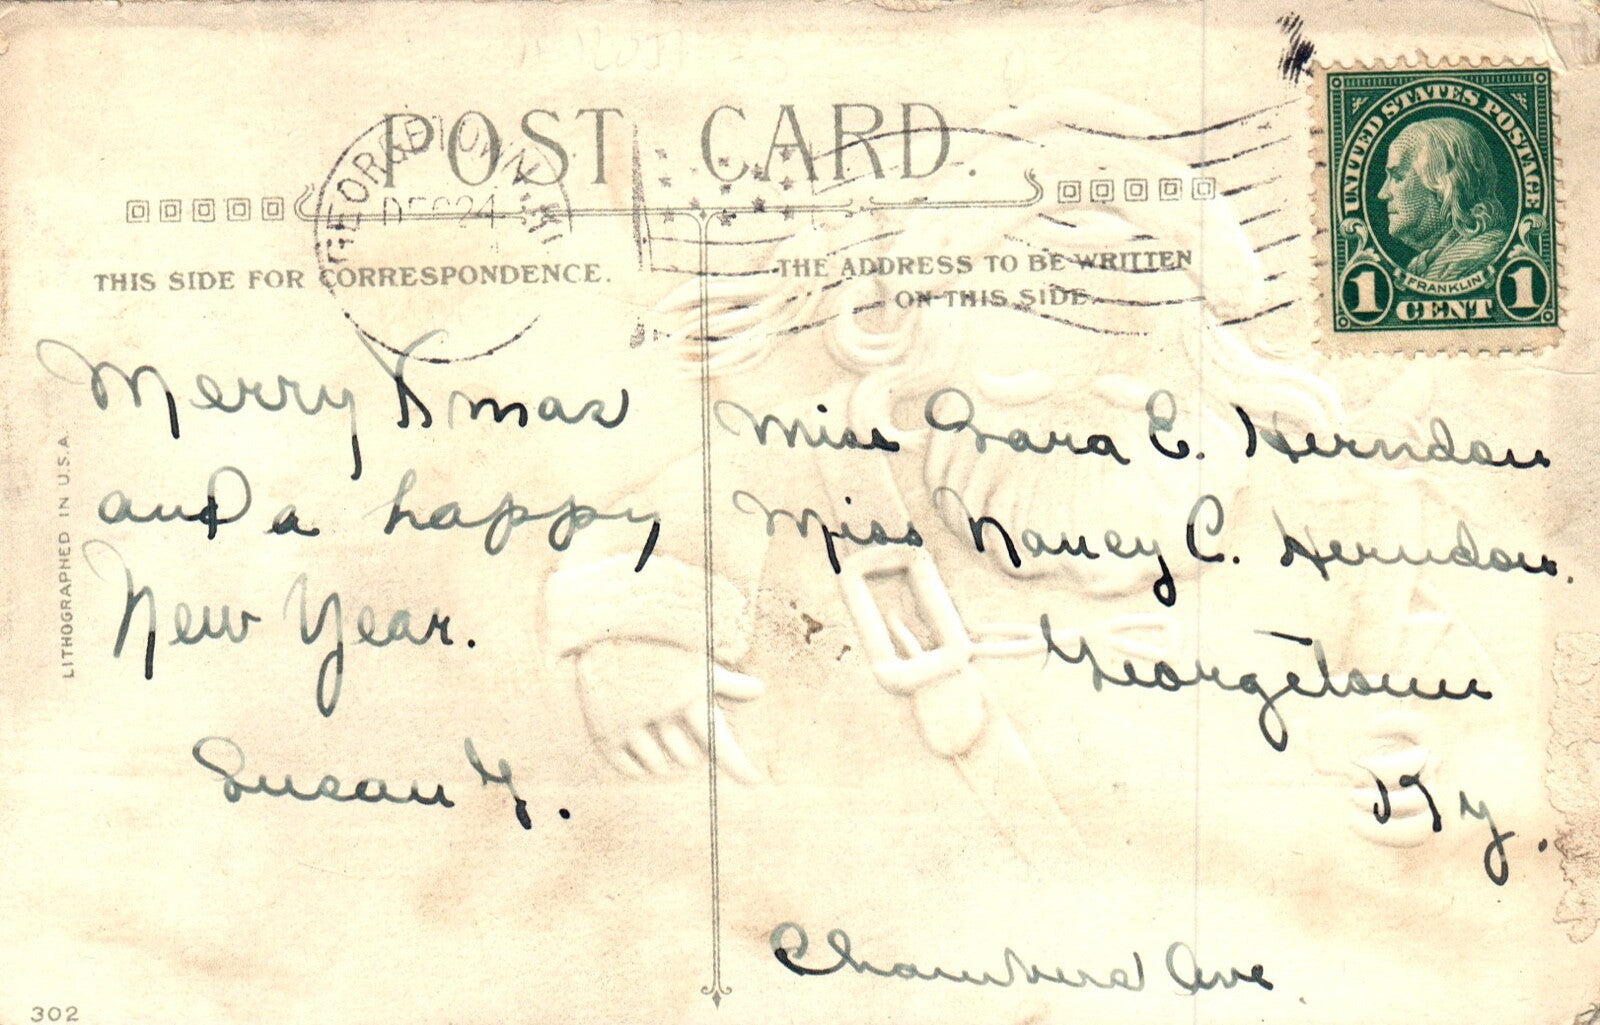 POST CARD.
GEORGETOWN
DEC 24
THIS SIDE FOR CORRESPONDENCE.
THE ADDRESS TO BE WRITTEN
ON THIS SIDE.
UNITED STATES POSTAGE
FRANKLIN
1 CENT 1
Merry Xmas
and a happy
New Year.
Susan Y.
Miss Sara E. Herndon
Miss Nancy C. Herndon.
Georgetown
Ky.
Chambers Ave.
LITHOGRAPHED IN U.S.A.
302